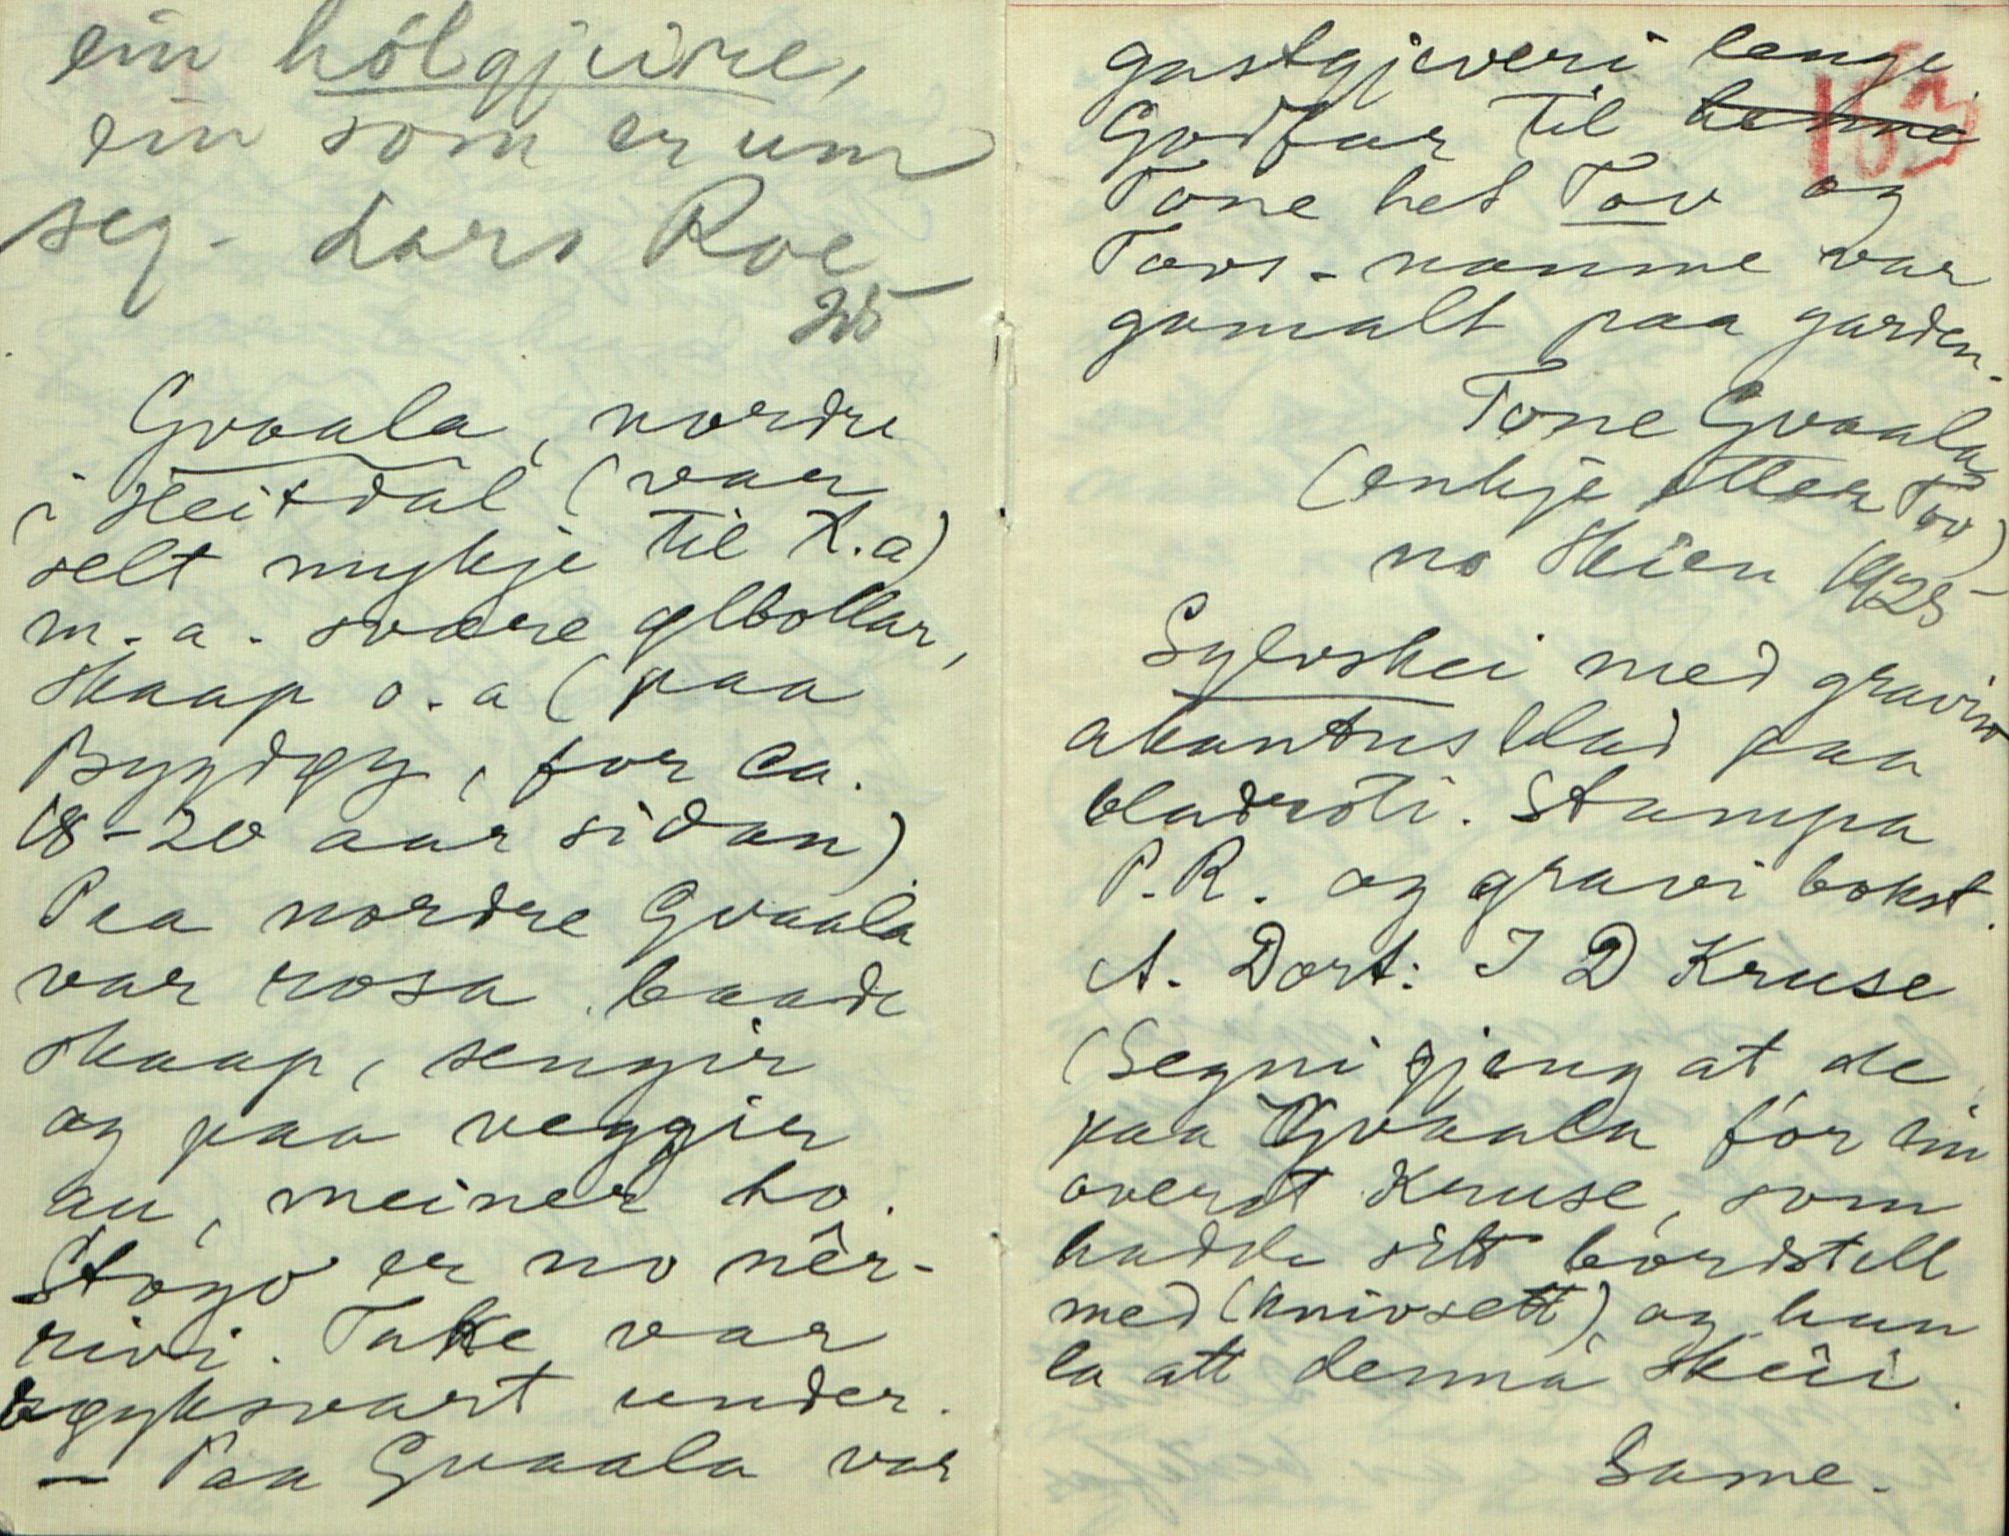 ein hólgjuire,
ein som er um
seg. Lars Roe
25
Gvaala, nordre
i Heitdal (var
selt mykje til K.a)
m.a. svære ølbollar,
skaap o.a (paa
Bygdøy, for ca.
18-20 aar sidan)
Paa nordre Gvaala
var rosa baade
skaap, sengir
og paa veggir
au, meiner ho.
Stogo er no nêr-
rivi. Take var
kgyksvart under.
– Paa Gvaala var
163
gastgjeveri lenge
Godfar til henne
Tone het Tov og
Tovs-namne var
gamalt paa garden.
Tone Gvaala
(enkje etter Tov)
no Skien 1925
Sylvskei med gravera
akantusblad paa
bladróti. Stampa
P.R. og gravi bokst.
A. Dort: I D Kruse
(Segni gjeng at de
paa Gvaala for ein
overst Kruse, som
hadde sitt bordstell
med (knivsett) og han
la att denna skeii.
Same.